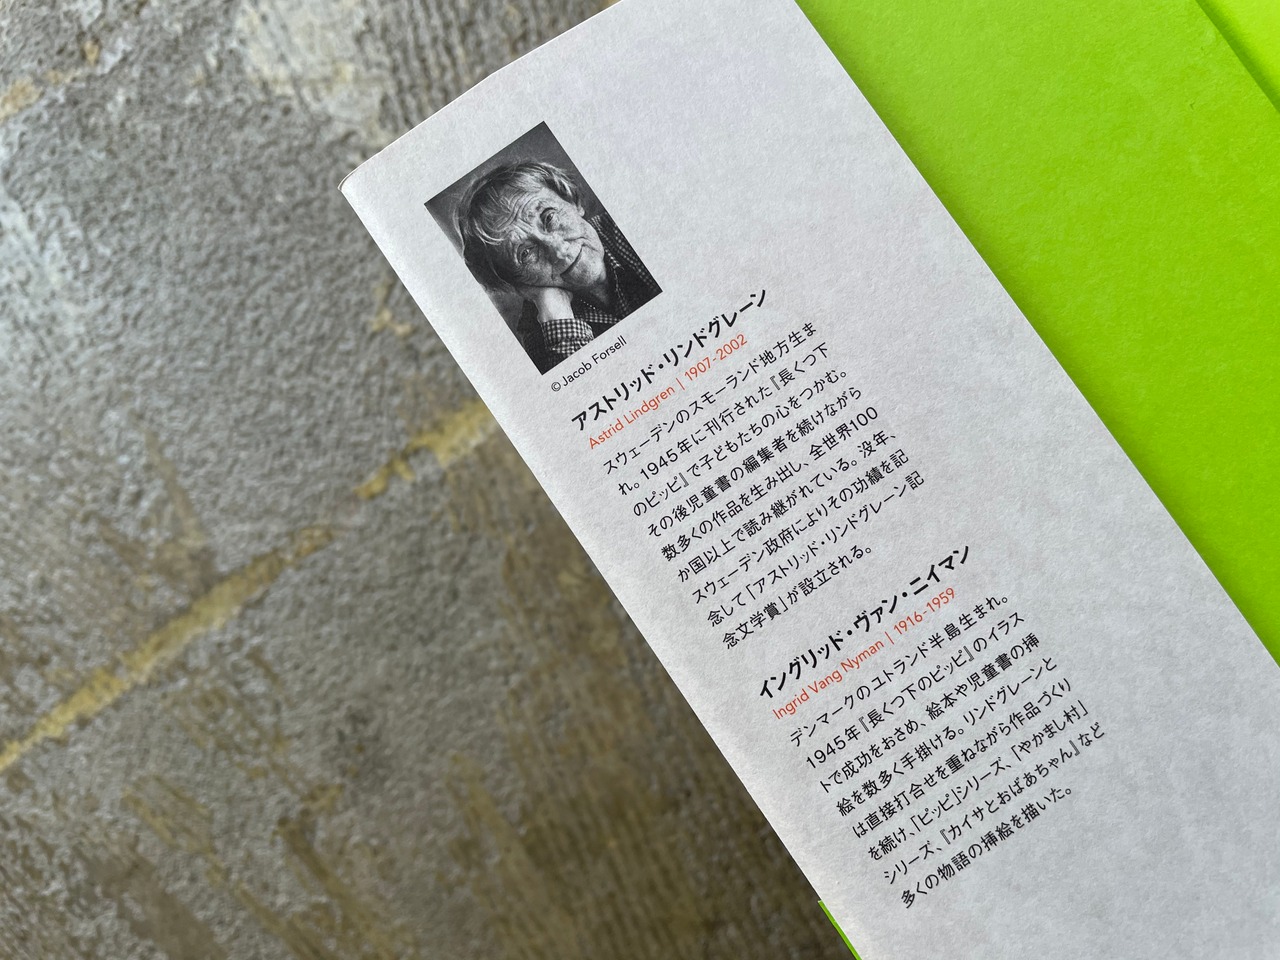 ©Jacob Forsell
アストリッド・リンドグレーン
Astrid Lindgren | 1907-2002
スウェーデンのスモーランド地方生ま
れ。1945年に刊行された『長くつ下
のピッピ』で子どもたちの心をつかむ。
その後児童書の編集者を続けながら
数多くの作品を生み出し、全世界100
か国以上で読み継がれている。没年、
スウェーデン政府によりその功績を記
念して「アストリッド・リンドグレーン記
念文学賞」が設立される。
イングリッド・ヴァン・ニイマン
Ingrid Vang Nyman | 1916-1959
デンマークのユトランド半島生まれ。
1945年『長くつ下のピッピ』のイラス
トで成功をおさめ、絵本や児童書の挿
絵を数多く手掛ける。リンドグレーンと
は直接打合せを重ねながら作品づくり
を続け、「ピッピ」シリーズ、「やかまし村」
シリーズ、『カイサとおばあちゃん』など
多くの物語の挿絵を描いた。